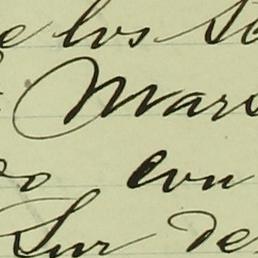 e los Se
Mars
do con
Sur de